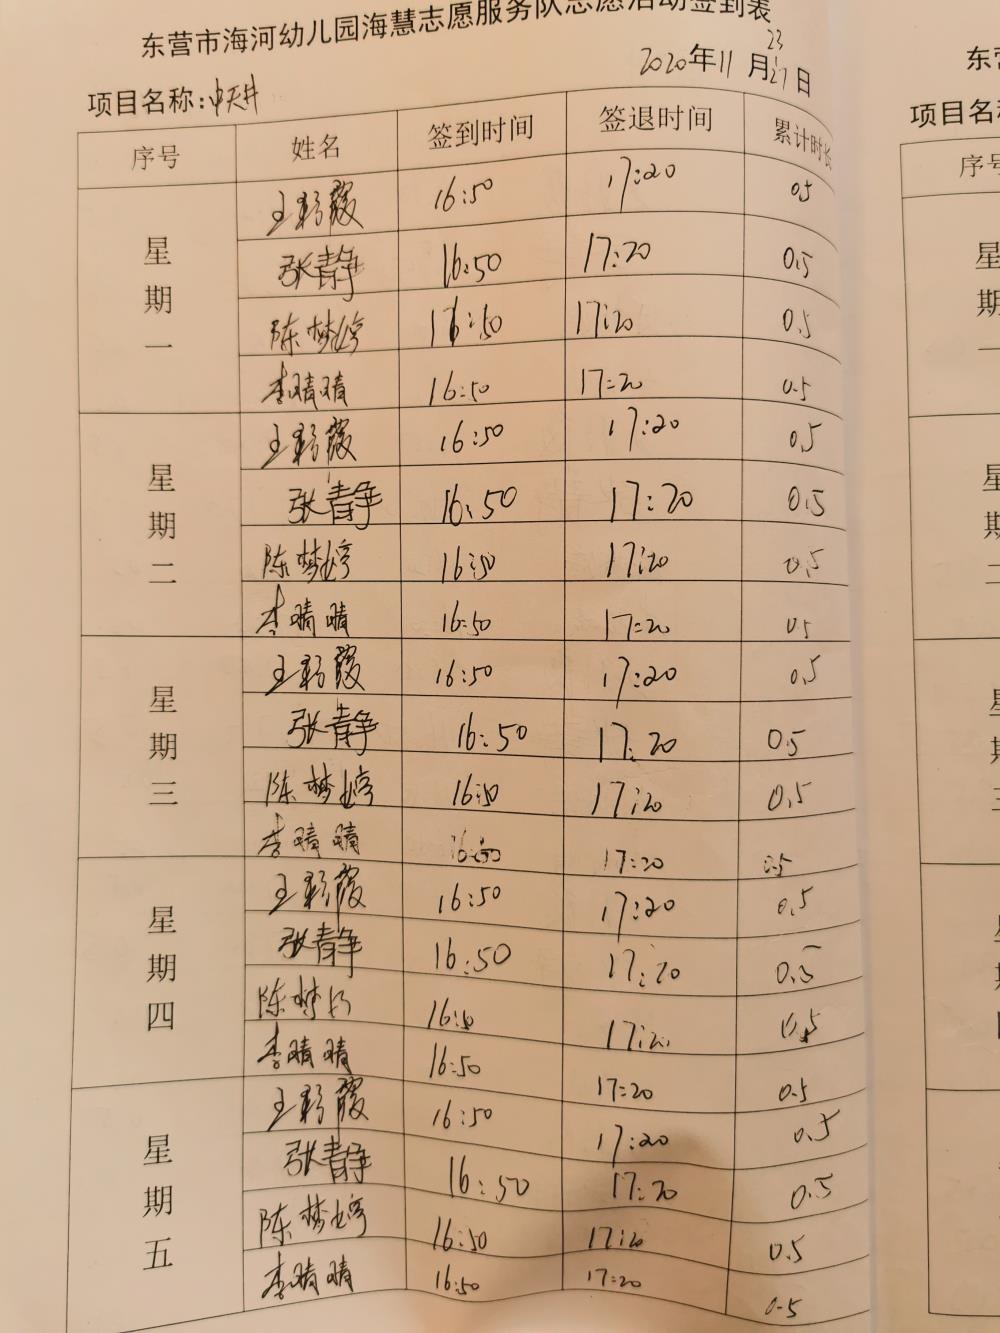 东营市海河幼儿园海慧志愿服务队志愿活动签到表
2020年11月23-27日
项目名称:中天井
序号 姓名 签到时间 签退时间 累计时长
星期一
王彩霞 16:50 17:20 0.5
张静 16:50 17:20 0.5
陈梦婷 16:50 17:20 0.5
李晴晴 16:50 17:20 0.5
星期二
王彩霞 16:50 17:20 0.5
张静 16:50 17:20 0.5
陈梦婷 16:50 17:20 0.5
李晴晴 16:50 17:20 0.5
星期三
王彩霞 16:50 17:20 0.5
张静 16:50 17:20 0.5
陈梦婷 16:50 17:20 0.5
李晴晴 16:50 17:20 0.5
星期四
王彩霞 16:50 17:20 0.5
张静 16:50 17:20 0.5
陈梦 16:50 17:20 0.5
李晴晴 16:50 17:20 0.5
星期五
王彩霞 16:50 17:20 0.5
张静 16:50 17:20 0.5
陈梦婷 16:50 17:20 0.5
李晴晴 16:50 17:20 0.5
东
项目名
序号
星
期
一
星